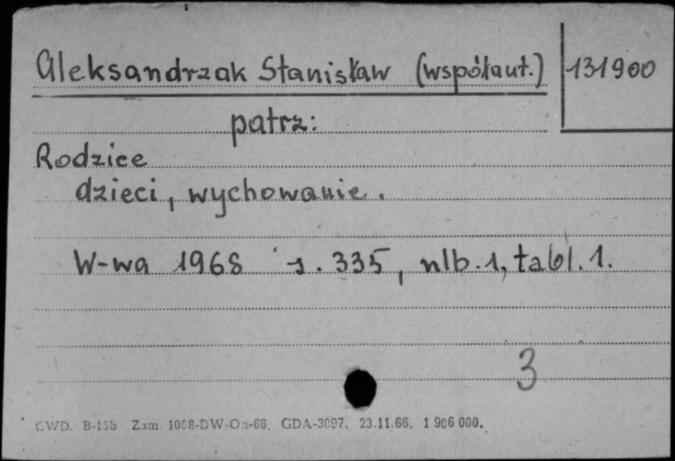 Aleksandrzak Stanisław (współaut.) 131900
patrz:
Rodzice
dzieci, wychowanie.
W-wa 1968 s. 335, nlb. 1, tabl. 1.
3
CWD. B-15b Zam. 1068-DW-Oa-66. GDA-3097. 23.11.66. 1 906 000.